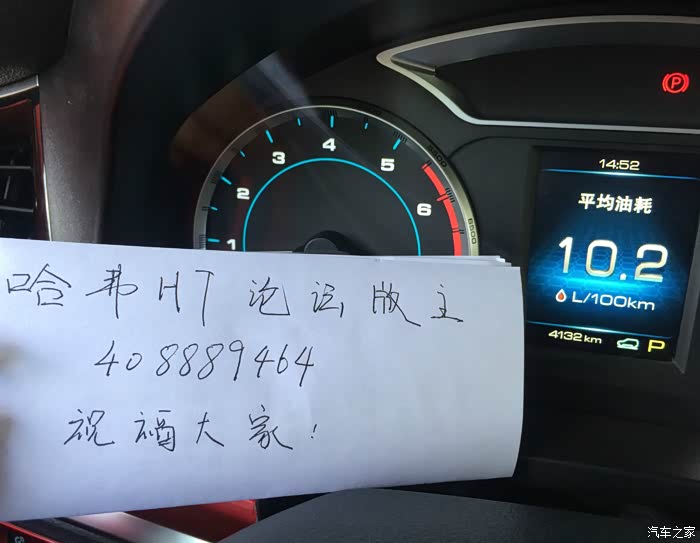 1 2 3 4 5 6
14:52
平均油耗
10.2
L/100km
4132 km P
哈弗H7论坛版主
408889464
祝福大家!
汽车之家